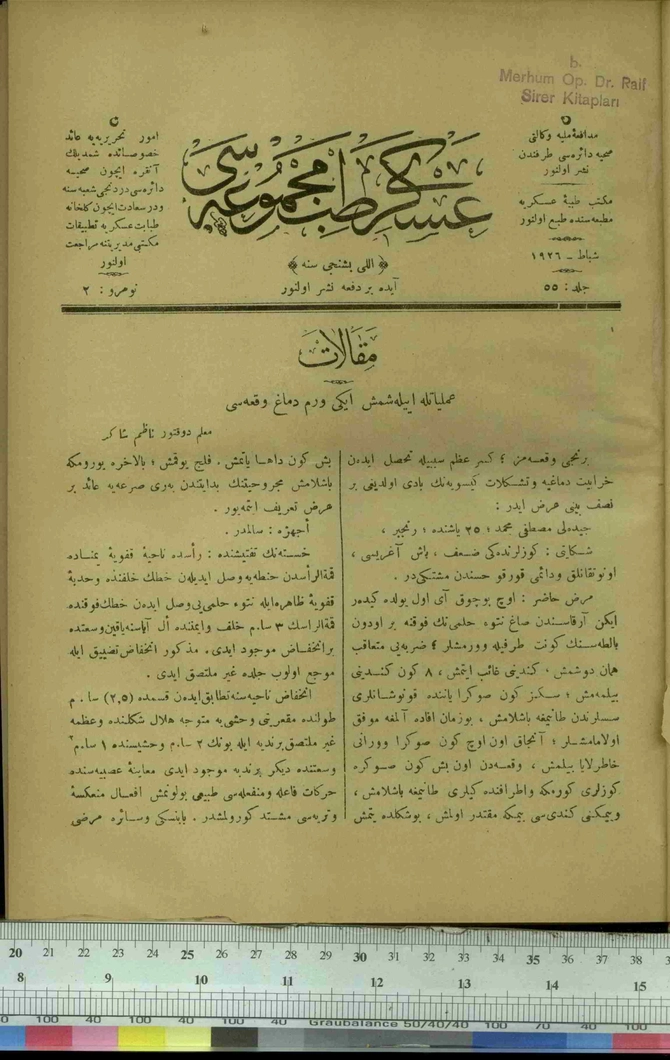 b.
Merhum Op. Dr. Raif
Sirer Kitapları
مدافعهٔ ملیه وکالتی
صحیه دائره‌سی طرفندن
نشر اولنور
مکتب طبیهٔ عسکریه
مطبعه‌سنده طبع اولنور
شباط ـ ١٩٢٦
جلد : ٥٥
عسکری طب مجموعه‌سی
﴿ اللی بشنجی سنه ﴾
آیده بر دفعه نشر اولنور
امور تحریریه‌یه عائد
خصوصاتده شمدیلك
آنقره ایچون صحیه
دائره‌سی دردنجی شعبه‌سنه
ودرسعادت ایچون کلخانه
طبابت عسکریه تطبیقات
مکتبی مدیریتنه مراجعت
اولنور
نومرو : ٢
مقالات
عملیاتله اییله‌شمش ایکی ورم دماغ وقعه‌سی
معلم دوقتور ناظم شاکر
برنجی وقعه‌مز ؛ کسر عظم سببیله تحصل ایدن
خرابیت دماغیه وتشکلات کیسویه‌نك بادی اولدیغی بر
نصف بینی مرض ایدر :
جیده‌لی مصطفی محمد ؛ ٢٥ یاشنده ؛ رنجبر ،
شکایتی : کوزلرنده‌کی ضعف ، باش آغریسی ،
اونوتقانلق ودائمی قورقو حسندن مشتکیدر .
مرض حاضر : اوچ بوچوق آی اول یولده کیدر
ایکن آرقاسندن صاغ نتوء حلمی‌نك فوقنه بر اودون
بالطه‌سنك کونت طرفیله وورمشلر ؛ ضربه‌یی متعاقب
همان دوشمش ، کندینی غائب ایتمش ، ٨ کون کندینی
بیلمه‌مش ؛ سکز کون صوکرا یاننده قونوشانلری
سسلرندن طانیمغه باشلامش ، بوزمان افاده آلمغه موفق
اولامامشلر ؛ آنجاق اون اوچ کون صوکرا وورانی
خاطرلایا بیلمش ، وقعه‌دن اون بش کون صوکره
کوزلری کورمکه واطرافنده کیلری طانیمغه باشلامش ،
ویمکنی کندیسی ییمکه مقتدر اولمش ، بوشکلده یتمش
بش کون داها یاتمش . فلج یوقمش ؛ بالاخره یورومکه
باشلامش مجروحیتنك بدایتندن بری صرعه‌یه عائد بر
مرض تعریف ایتمه‌یور .
أجهزه : سالمدر .
خسته‌نك تفتیشنده : رأسده ناحیهٔ قفویهٔ یمناده
قمةالرأسدن حنطه‌یه وصل ایدیلن خطك خلفنده وحدبهٔ
قفویهٔ ظاهره‌ایله نتوء حلمی‌یی وصل ایدن خطك فوقنده
قمةالراسك ٣ سا.م خلف وایمننده أل آیاسنه‌یاقین وسعتده
بر انخفاض موجود ایدی. مذکور انخفاض تضییق ایله
موجع اولوب جلده غیر ملتصق ایدی .
انخفاض ناحیه‌سنه تطابق ایدن قسمده (٢,٥) سا . م
طولنده مقعریتی وحشی‌یه متوجه هلال شکلنده وعظمه
غیر ملتصق بر ندبه ایله بونك ٢ سا.م وحشیسنده ١ سا.م٢
وسعتنده دیکر بر ندبه موجود ایدی معاینهٔ عصبیه‌سنده
حرکات فاعله ومنفعله‌سی طبیعی بولونمش افعال منعکسهٔ
وتریه‌سی مشتد کورولمشدر . بابنسکی وسائره مرضی